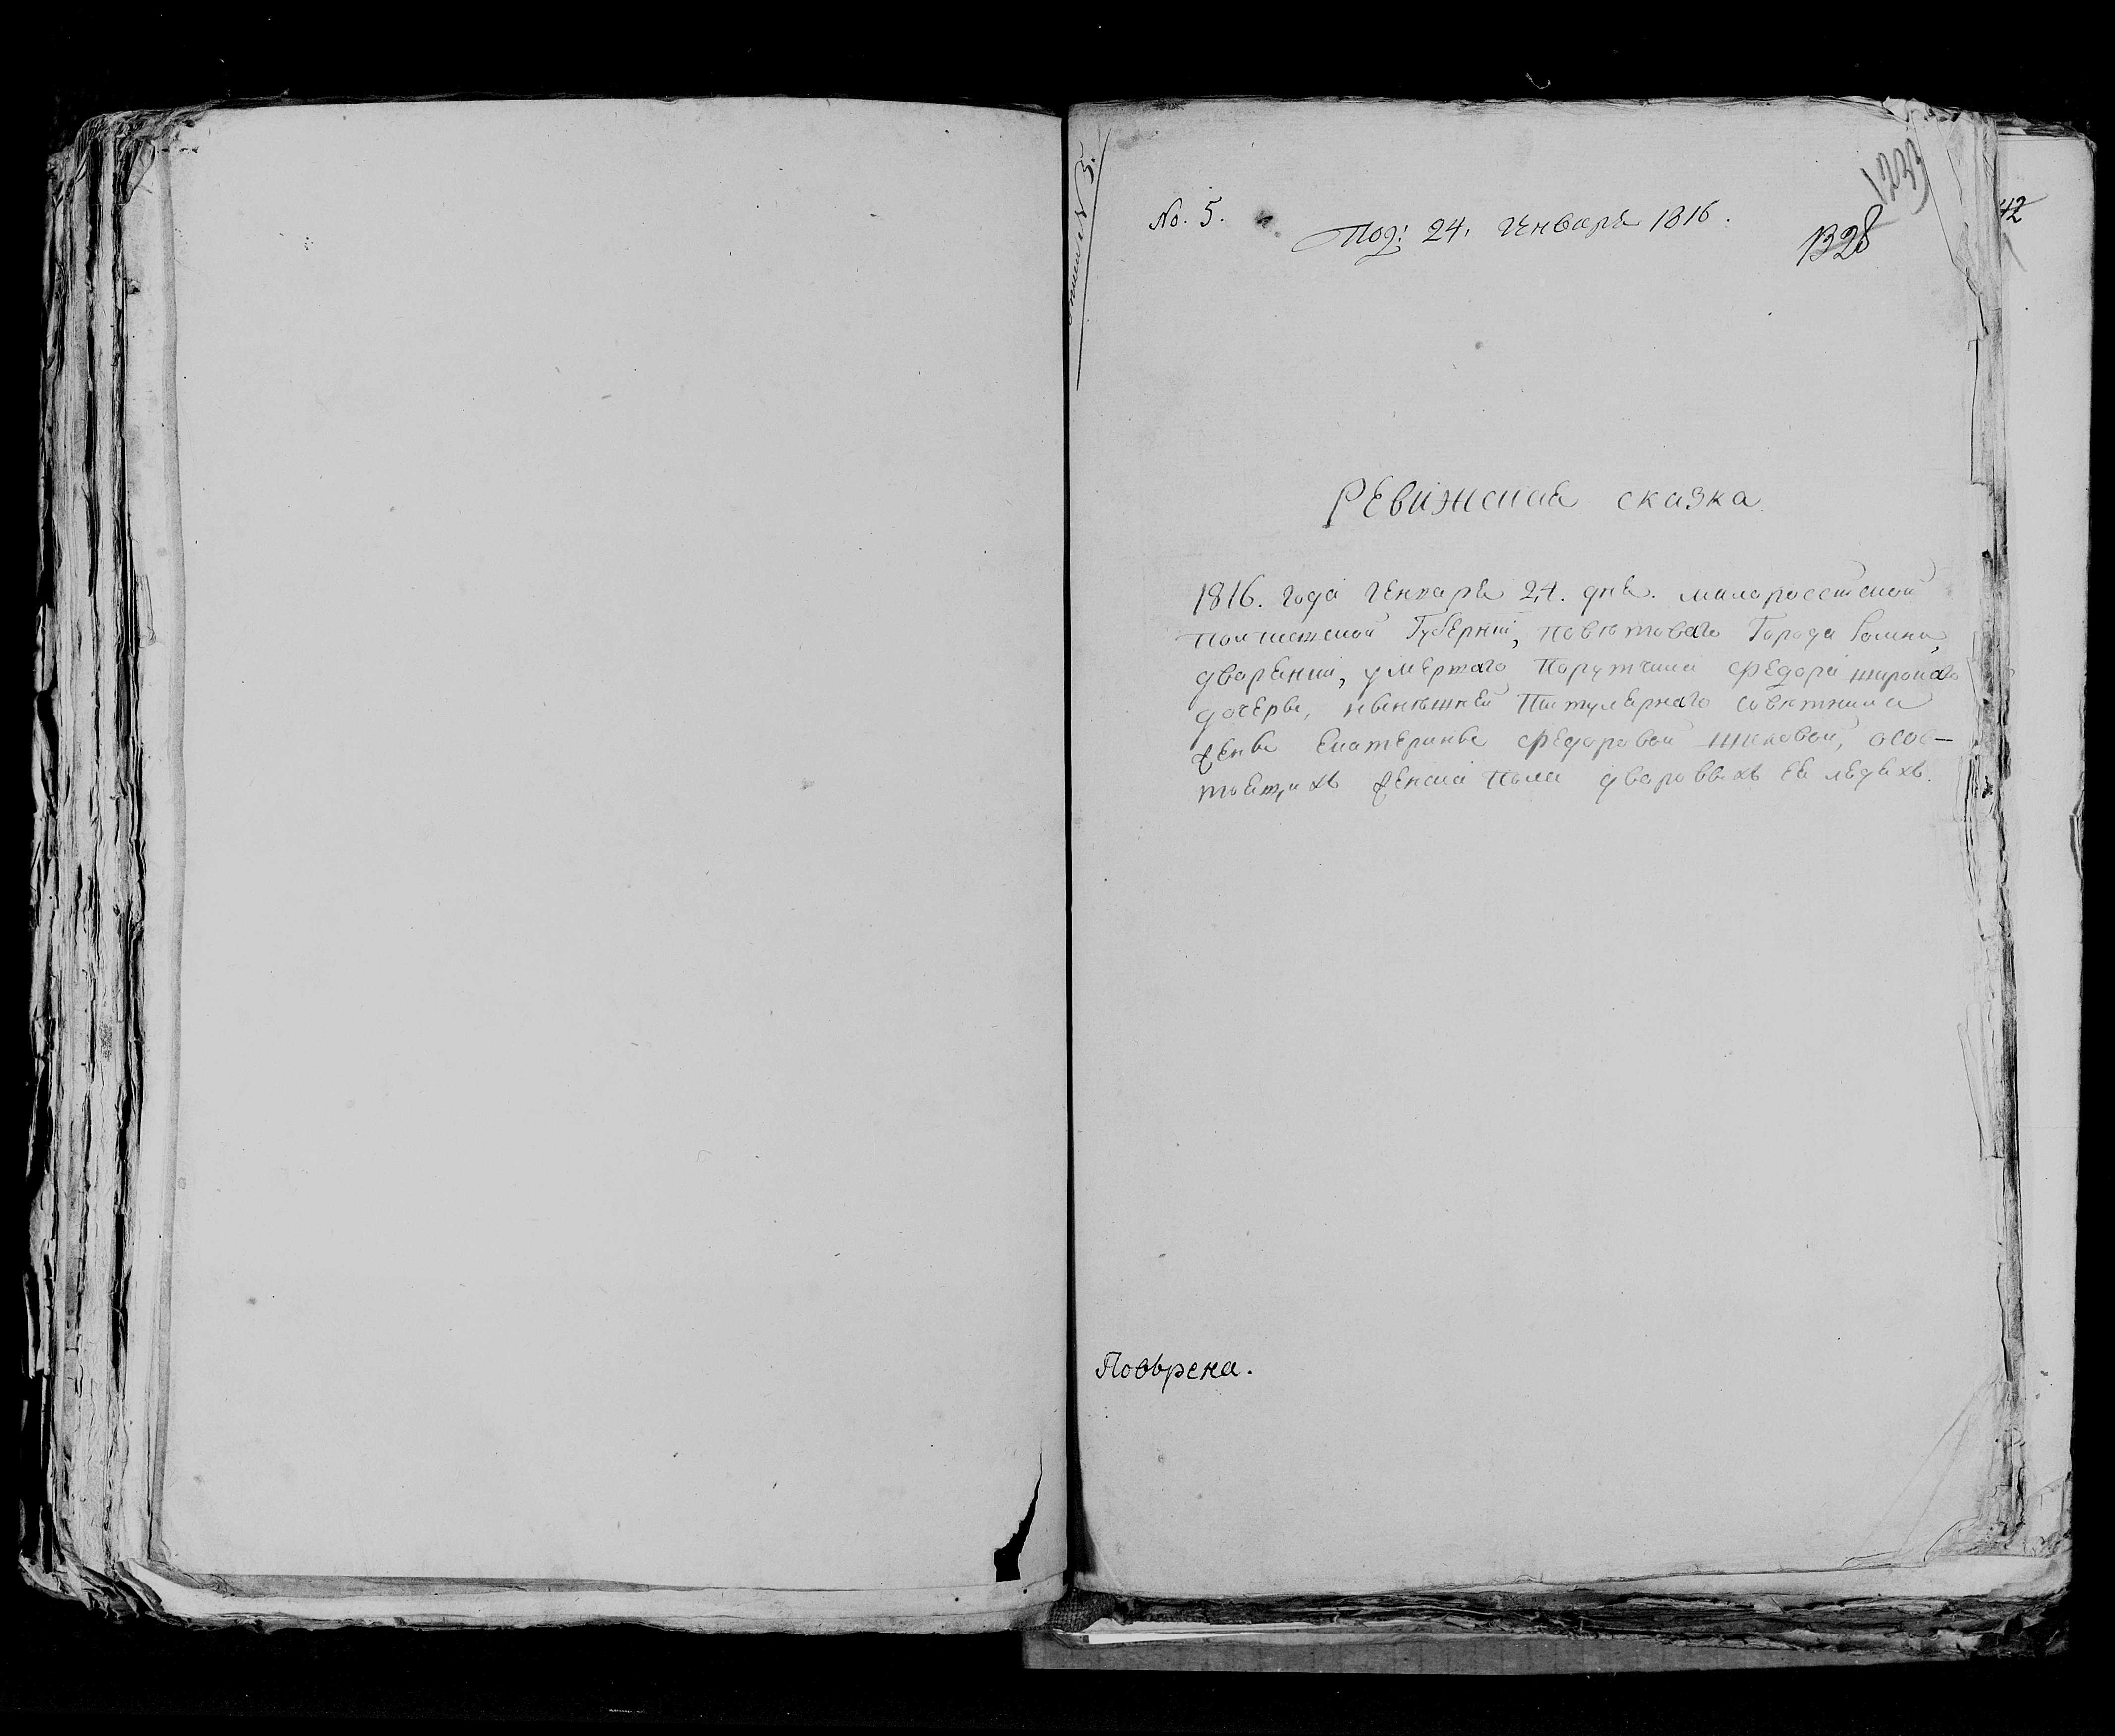 No. 5.
Под: 24. генваря 1816.
1233
1328
42
Ревижская сказка
1816. года генваря 24. дня. малороссийской
полтавской Губернии, поветоваго Города Ромна,
дворянки, умершаго Порутчика Федора
дочери, нынешней Титулярнаго советника
жены Екатерины Федоровой о сос-
тоящихъ женска пола дворовыхъ ея людяхъ.
Поверена.